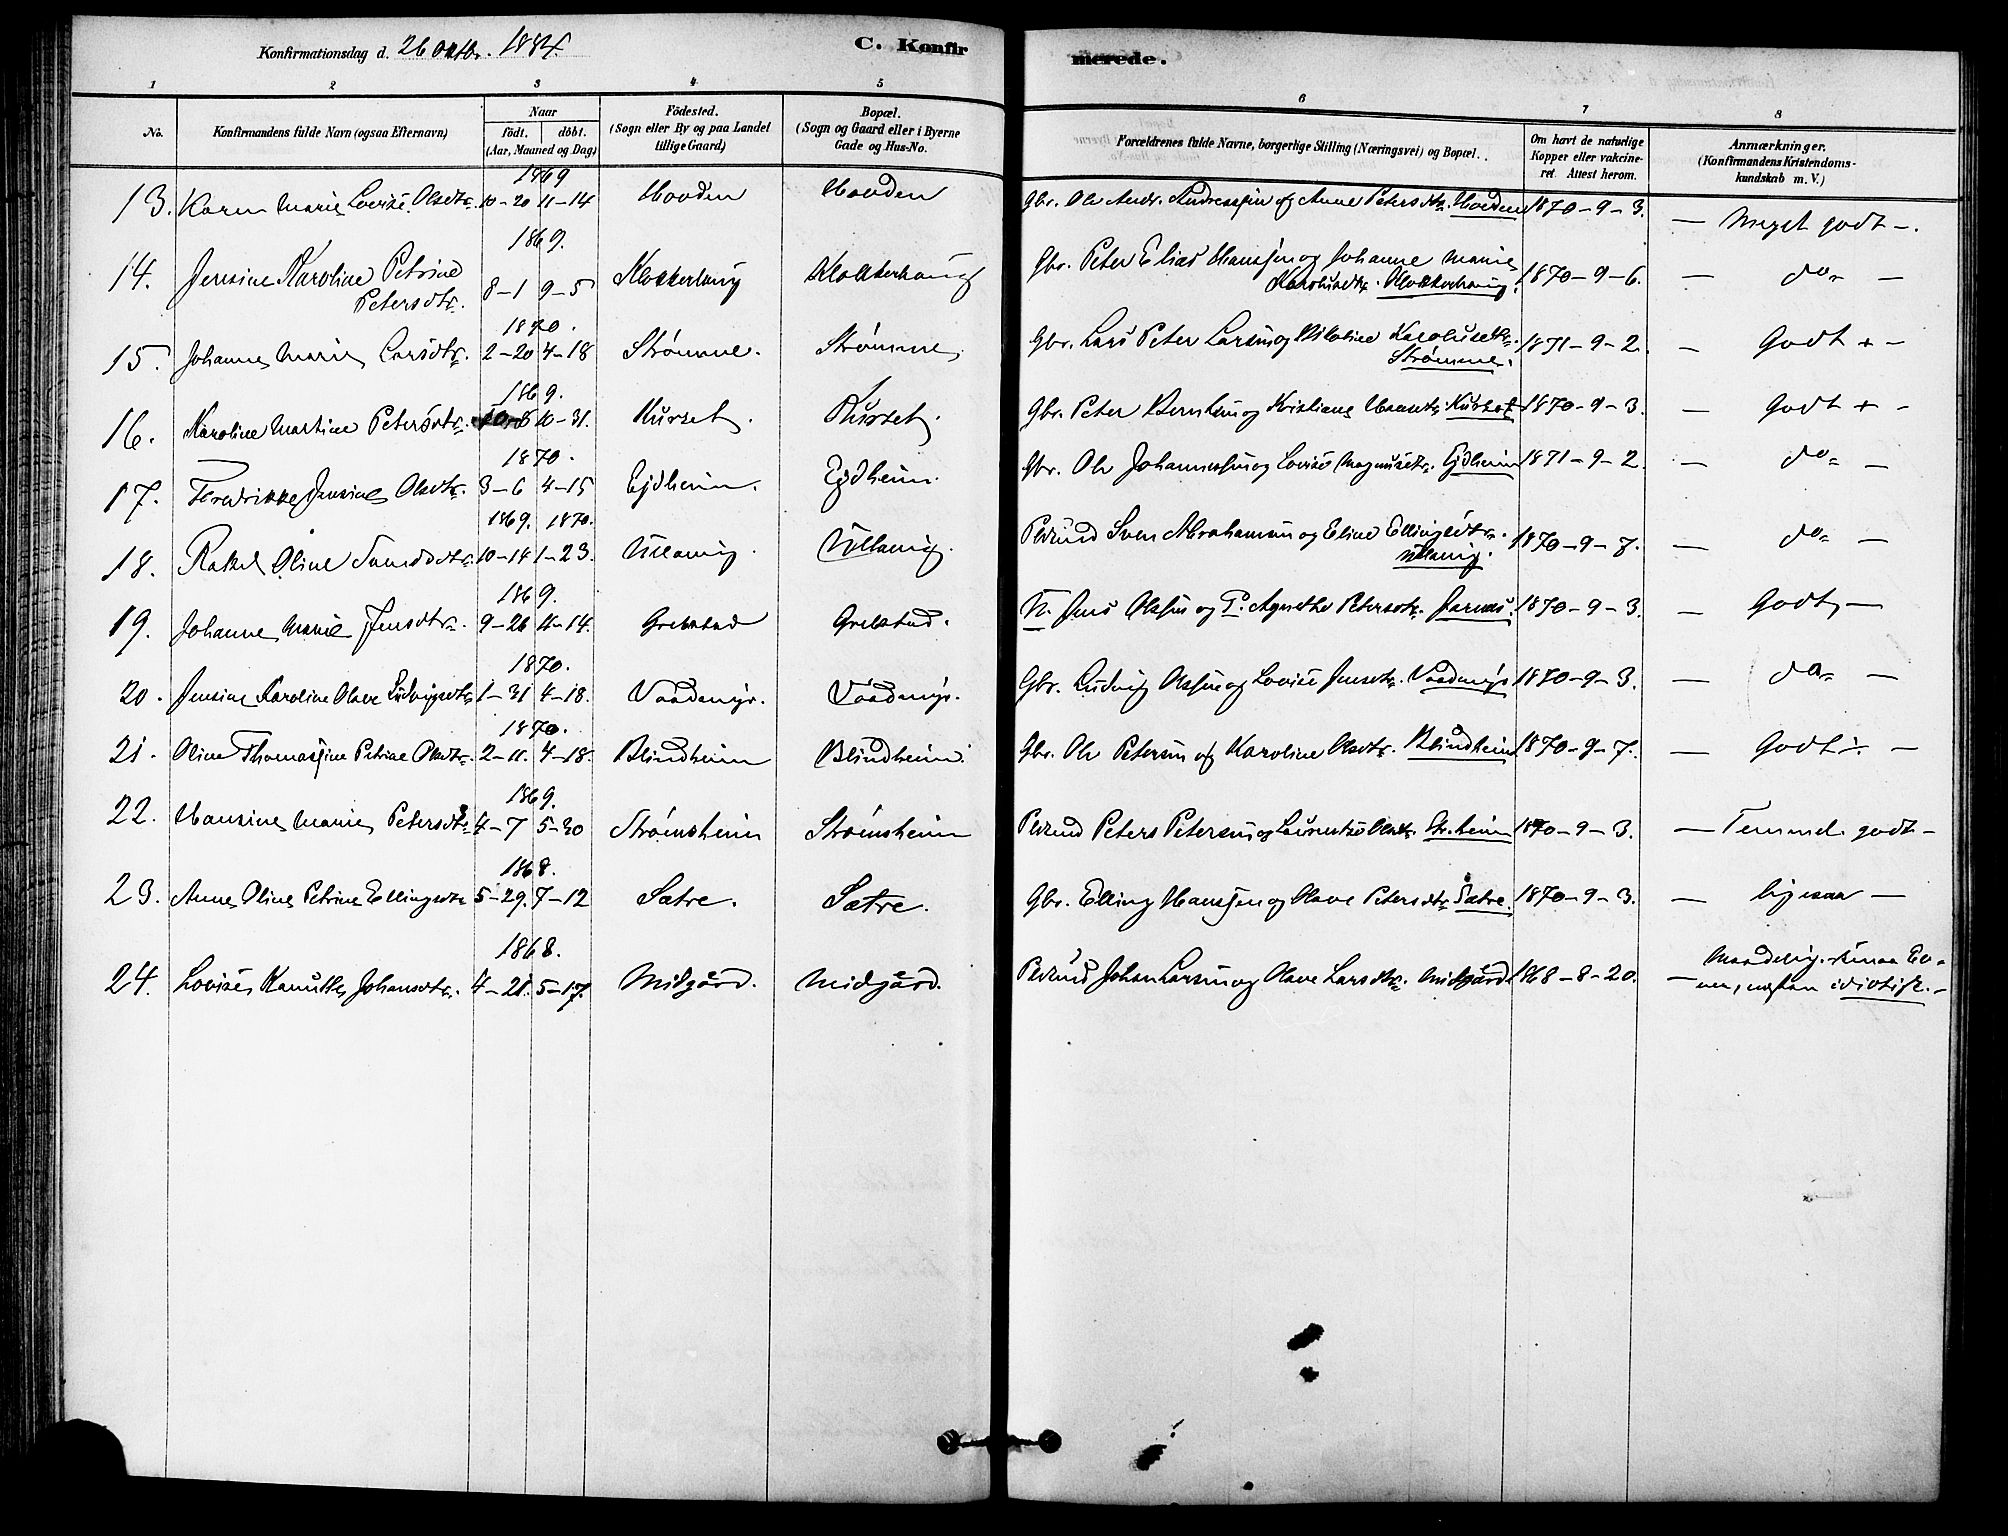 Konfirmationsdag d. 26 Oktbr. 1884.
C. Konfirmerede.
1 2 3 4 5 6 7 8
No. Konfirmandens fulde Navn (ogsaa Efternavn) Naar födt. döbt. (Aar, Maaned og Dag) Födested. (Sogn eller By og paa Landet tillige Gaard) Bopæl. (Sogn og Gaard eller i Byerne Gade og Hus-No. Forældrenes fulde Navne, borgerlige Stilling (Næringsvei) og Bopæl. Om havt de naturlige Kopper eller vakcineret. Attest herom. Anmærkninger. (Konfirmandens Kristendomskundskab m. V.)
1869
13. Karen Marie Lovise Olsdtr. 10-20 11-14 Hovden Hovden Gbr. Ole Andr. Andreassen og Anne Petersdtr. Hovden 1870-9-3. — Meget godt —.
1869.
14. Jensine Karoline Petrine Gbr. Peter Elias Hanssen og Johanne Marie
Petersdtr. 8-1 9-5 Klokkerhaug Klokkerhaug Karolusdtr. Klokkerhaug. 1870-9-6. — do —
1870.
15. Johanne Marie Larsdtr. 2-20 4-18 Strømme. Strømme. Gbr. Lars Peter Larsen og Nikoline Karolusdtr. 1871-9-2. — Godt + —
Strømme.
1869.
16. Karoline Martine Petersdtr. 10-8 10-31. Kurset. Kurset. Gbr. Peter Berntsen og Kristiane Hansdtr. Kurset 1870-9-3. — Godt + —
1870.
17. Fredrikke Jensine Olsdtr. 3-6 4-15 Ejdheim. Ejdheim. Gbr. Ole Johannessen og Lovise Magnusdtr. Ejdheim 1871-9-2. — do —
1869. 1870.
18. Rakel Oline Svendsdtr. 10-14 1-23. Ullavig. Ullavig. Pldmd Sven Abrahamsen og Eline Ellingsdtr. 1870-9-7. — do —
Ullavig.
1869.
19. Johanne Marie Jensdtr. 9-26 11-14. Grebstad Grebstad. U. Jens Olssen og P. Agnethe Petersdtr. Jarnes. 1870-9-3. — Godt, —
1870.
20. Jensine Karoline Olave Ludvigsdtr. 1-31 4-18. Vaadmyr. Vaadmyr. Gbr. Ludvig Olssen og Lovise Jensdtr. Vaadmyr 1870-9-3. — do —
1870.
21. Oline Thomassine Petrine Olsdtr. 2-11. 4-18. Blindheim Blindheim. Gbr. Ole Petersen og Karoline Olsdtr. Blindheim 1870-9-7. — Godt ÷ —
1869.
22. Hansine Marie Petersdtr. 4-7 5-30 Strømsheim Strømsheim Pldmd Peters Petersen og Laurentse Olsdtr. Str.heim 1870-9-3. — Temmel. godt —
1868.
23. Anne Oline Petrine Ellingsdtr. 5-29. 7-12 Sætre. Sætre. Gbr. Elling Hanssen og Olave Petersdtr. Sætre. 1870-9-3. — ligesaa —
1868.
24. Lovise Kanutte Johansdtr. 4-21. 5-17. Midgård. Midgård. Pldmd Johan Larsen og Olave Larsdtr. Midgård. 1868-8-20. — Maadelig. smaa Ev-
ner, næsten idiotisk. —